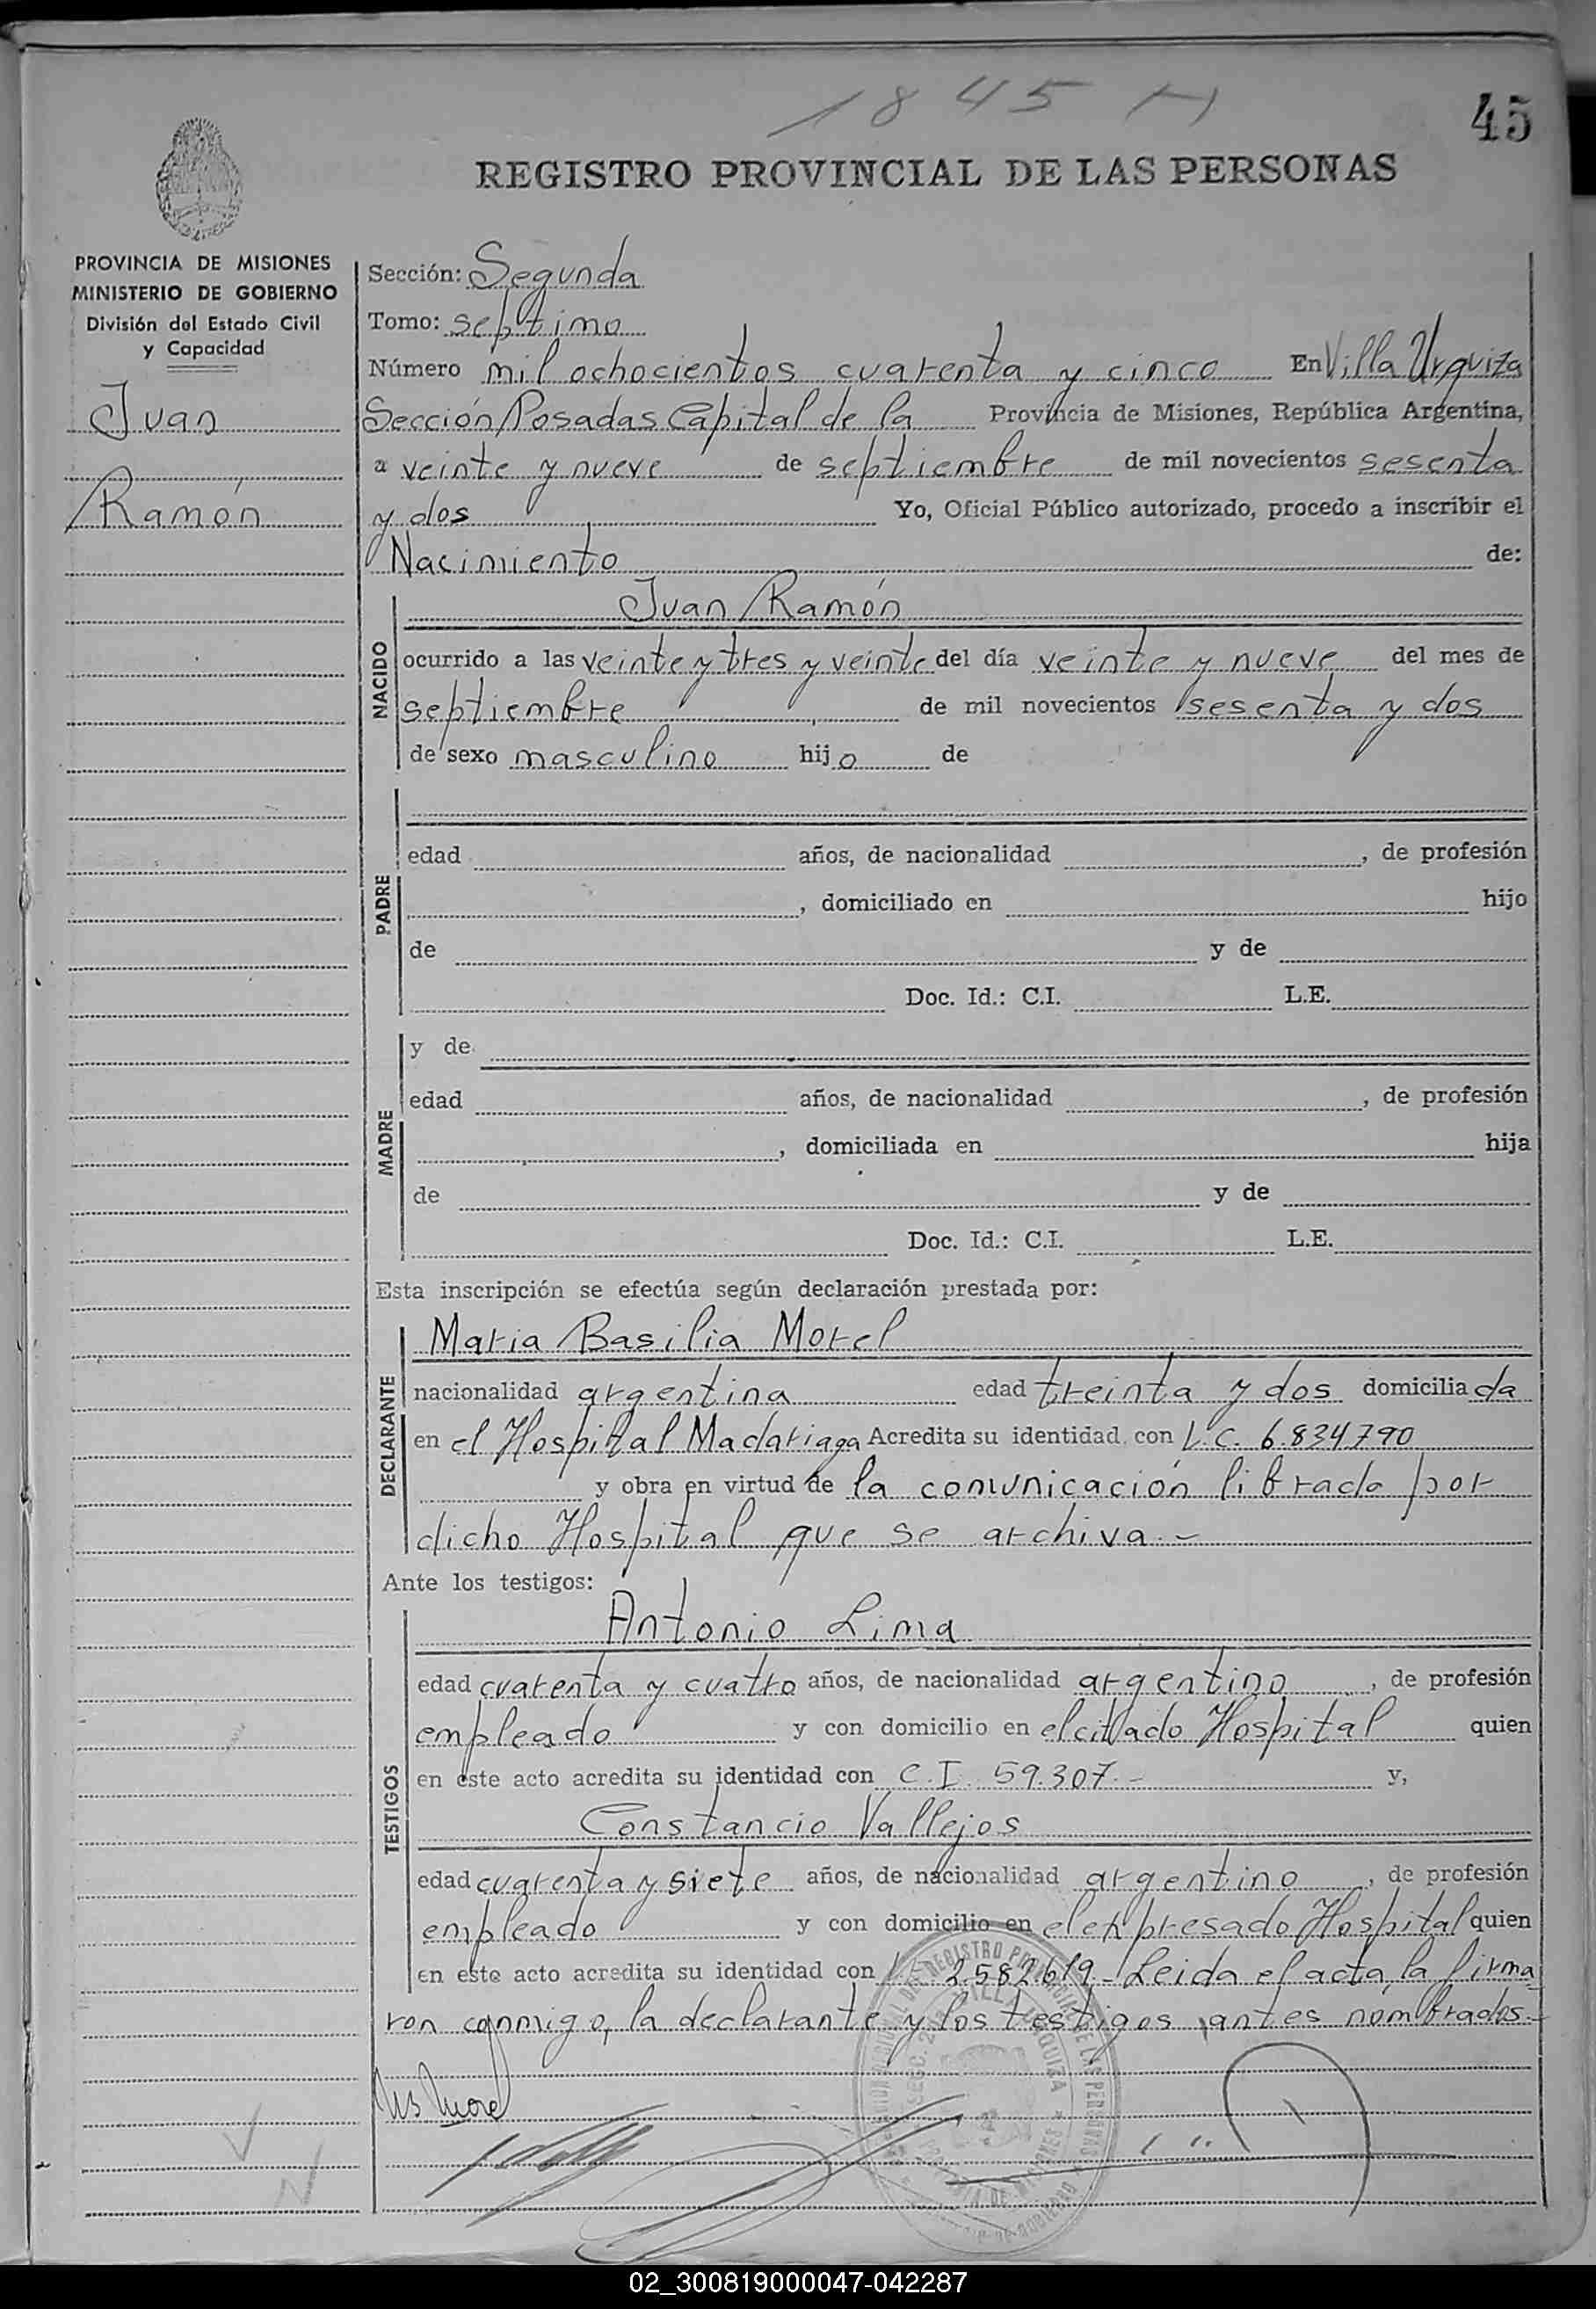 1845 H
45
REGISTRO PROVINCIAL DE LAS PERSONAS
PROVINCIA DE MISIONES
MINISTERIO DE GOBIERNO
División del Estado Civil
y Capacidad
Juan
Ramón
Sección: Segunda
Tomo: septimo
Número mil ochocientos cuarenta y cinco En Villa Urquiza
Sección Posadas Capital de la Provincia de Misiones, República Argentina,
a veinte y nueve de septiembre de mil novecientos sesenta
y dos Yo, Oficial Público autorizado, procedo a inscribir el
Nacimiento de:
NACIDO
Juan Ramón
ocurrido a las veinte y tres y veinte del día veinte y nueve del mes de
septiembre de mil novecientos sesenta y dos
de sexo masculino hijo de
PADRE
edad años, de nacionalidad , de profesión
, domiciliado en hijo
de y de
Doc. Id.: C.I. L.E.
MADRE
y de
edad años, de nacionalidad , de profesión
, domiciliada en hija
de y de
Doc. Id.: C.I. L.E.
Esta inscripción se efectúa según declaración prestada por:
DECLARANTE
Maria Basilia Morel
nacionalidad argentina edad treinta y dos domiciliada
en el Hospital Madariaga Acredita su identidad con L.C. 6.834.790
y obra en virtud de la comunicación librada por
dicho Hospital que se archiva.-
Ante los testigos:
TESTIGOS
Antonio Lima
edad cuarenta y cuatro años, de nacionalidad argentino, de profesión
empleado y con domicilio en el citado Hospital quien
en este acto acredita su identidad con C.I. 59.307.- y,
Constancio Vallejos
edad cuarenta y siete años, de nacionalidad argentino, de profesión
empleado y con domicilio en el expresado Hospital quien
en este acto acredita su identidad con 2.582.619- Leida el acta, la firma
ron conmigo, la declarante y los testigos antes nombrados.-
Morel
02_300819000047-042287